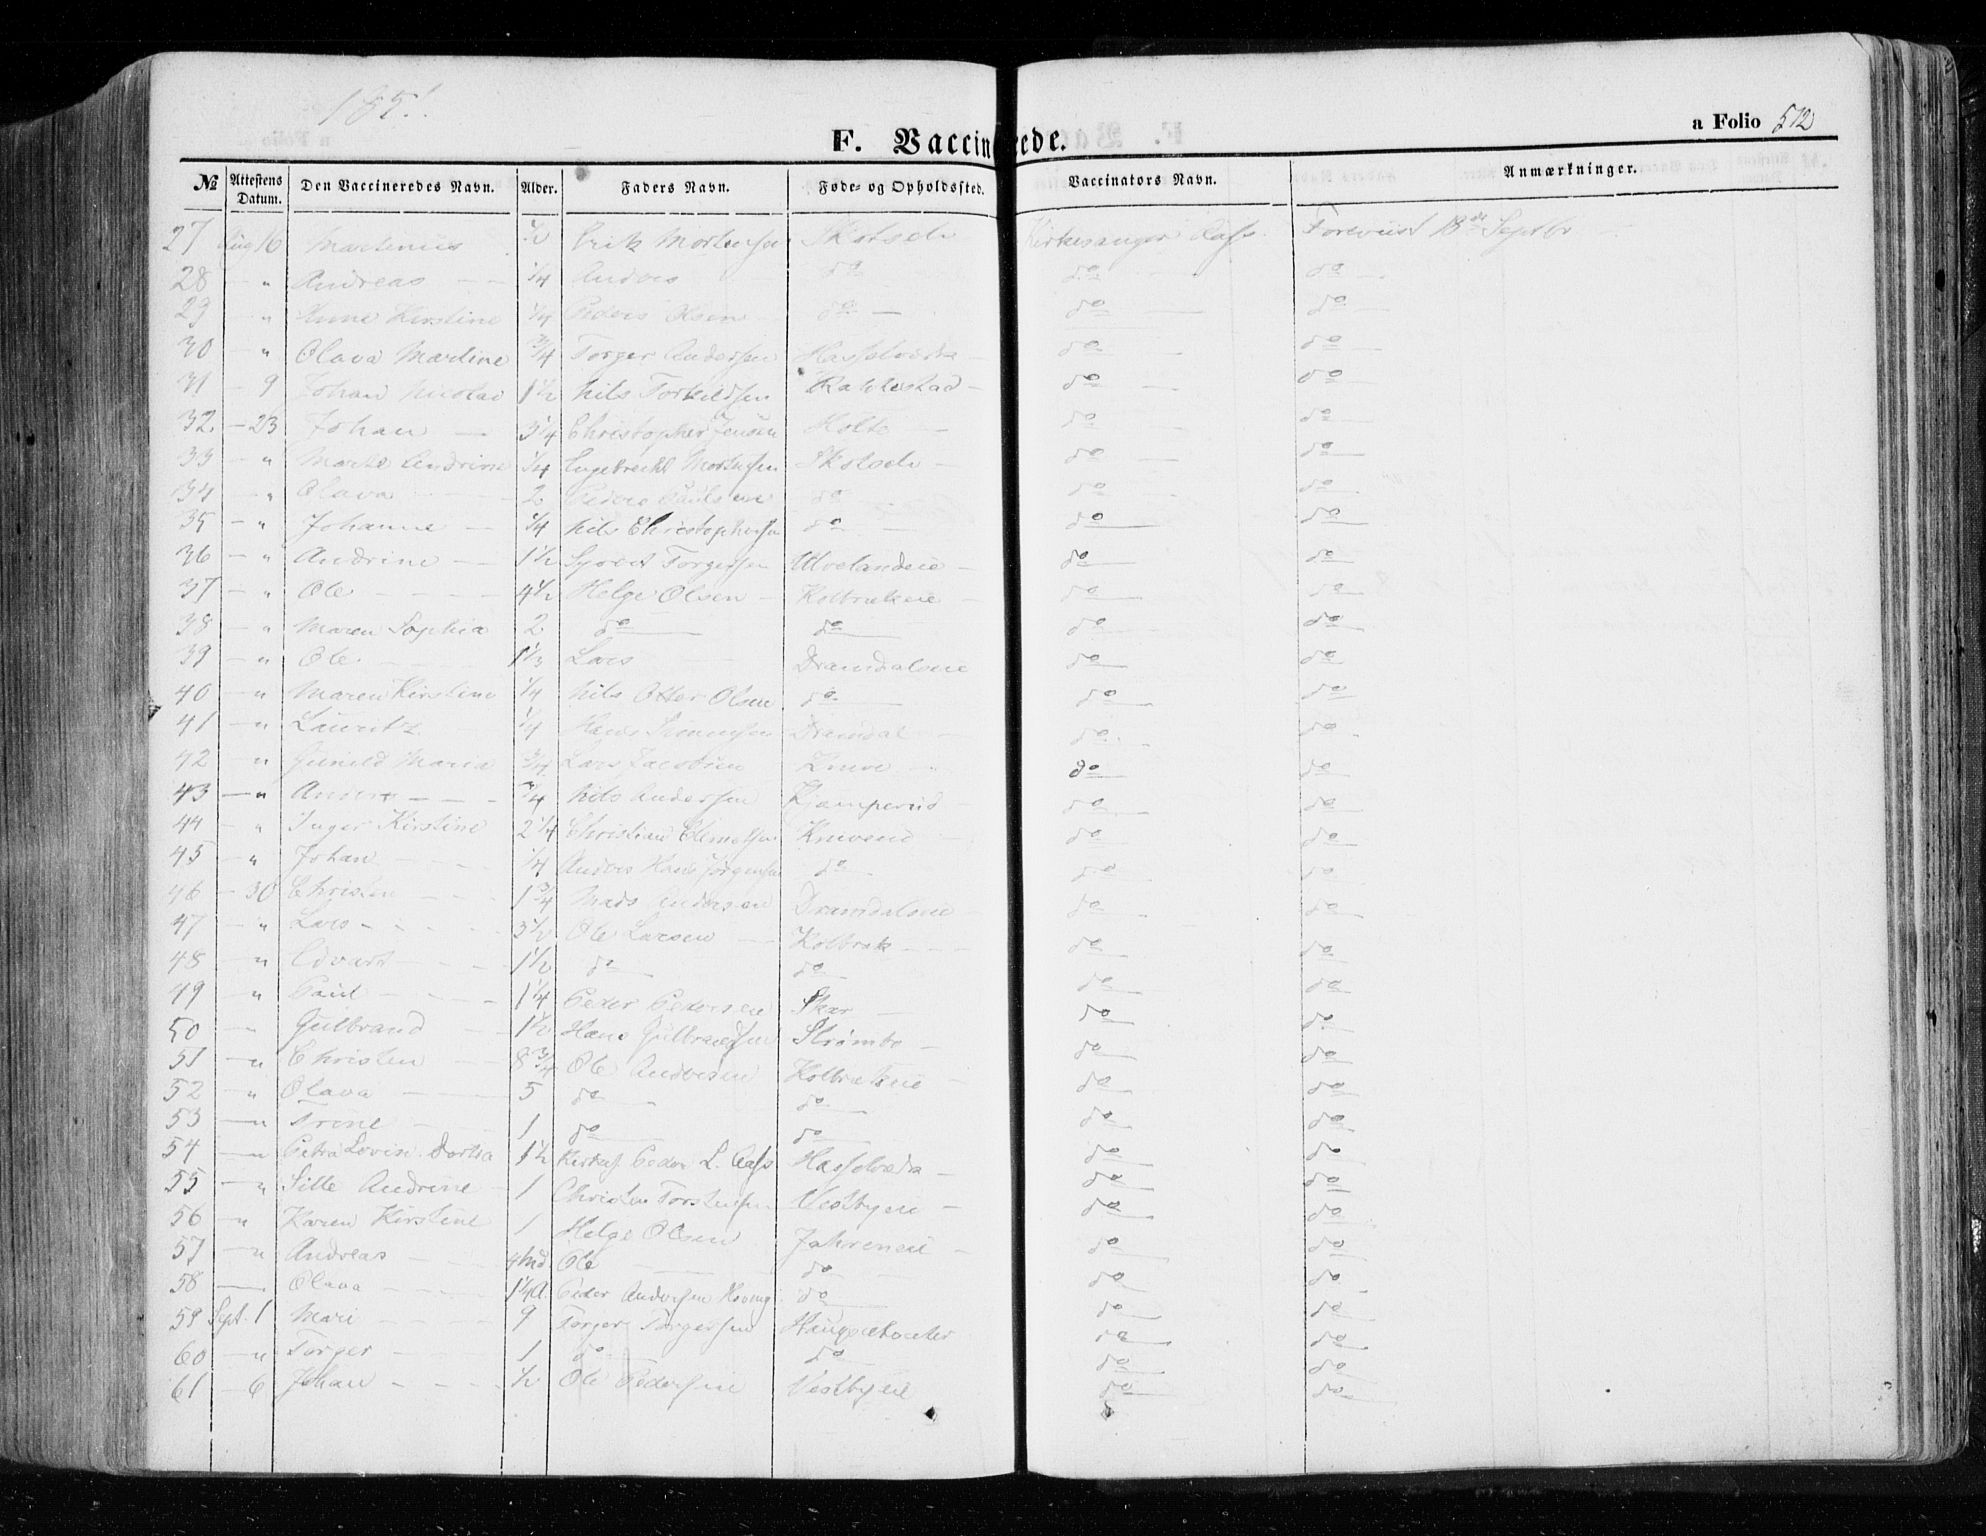 1851.
F. Vaccinerede.
a Folio 512
№ Attestens Datum. Den Vaccineredes Navn. Alder. Faders Navn. Føde- og Opholdssted. Vaccinators Navn. Anmærkninger.
27 Aug 16 Martinus 1/2 Erik Mortensen Skotsele Kirkesanger Aass. Forevist 18de Septbr
28 - " Andreas 1/4 Anders do do do
29 " Anne Kirstine 1/4 Peder Olsen do do do
30 " Olava Martine 3/4 Torger Andersen Hasselvedra do do
31 - 9 Johan Nicolai 1 1/2 Nils Torkildsen Rakkestad do do
32 - 23 Johan 3 1/4 Christopher Jensen Holte do do
33 - " Marte Andrine 1/4 Engebreckt Mortensen Skotsele do do
34 - " Olava 2 Peder Paulsen do do do
35 - " Johanne 1/4 Nils Christophersen do do do
36 - " Andrine 1 1/2 Syvert Torgersen Ulvelandeie do do
37 - " Ole 4 1/2 Helge Olsen Kolbrækeie do do
38 - " Maren Sophia 2 do do do do
39 - " Ole 1 1/3 Lars Dramdalseie do do
40 - " Maren Kirstine 1/4 Nils Otter Olsen do do do
41 - " Lauritz 1/4 Hans Simensen Dramdal do do
42 " Gunild Maria 3/4 Lars Jacobsen Knive do do
43 - " Anders 3/4 Nils Andersen Kjamperud do do
44 - " Inger Kirstine 2 1/4 Christian Clemetsen Kniveeie do do
45 " Johan 1/4 Anders Hans Jørgensen do do do
46 - 30 Christen 1 3/4 Mads Andersen Dramdalseie do do
47 - " Lars 3 1/2 Ole Larsen Kolbræk do do
48 - " Edvart 1 1/2 do do do do
49 - " Paul 1 1/4 Peder Pedersen Skar do do
50 " Gulbrand 1 1/2 Hans Gulbrandsen Strømbo do do
51 - " Christen 8 3/4 Ole Andersen Kolbrækeie do do
52 " Olava 5 do do do do
53 - " Trine 1 do do do do
54 - " Petra Lovise Dortea 1 1/2 Kirkes. Peder L. Aass Hasselvedra do do
55 - " Sille Andrine 1 Christen Torstensen Vestbyeie do do
56 - " Karen Kirstine 1 Helge Olsen Jahreneie do do
57 - " Andreas 4 Md. Ole do do do
58 - Olava 1 1/4 A Peder Andersen Hoveng do do do
59 Sept. 1 Mari 9 Torger Torgersen do do
60 - " Torger 1 do do do do
61 - 6 Johan 1/2 Ole Pedersen Vestbyeie do do